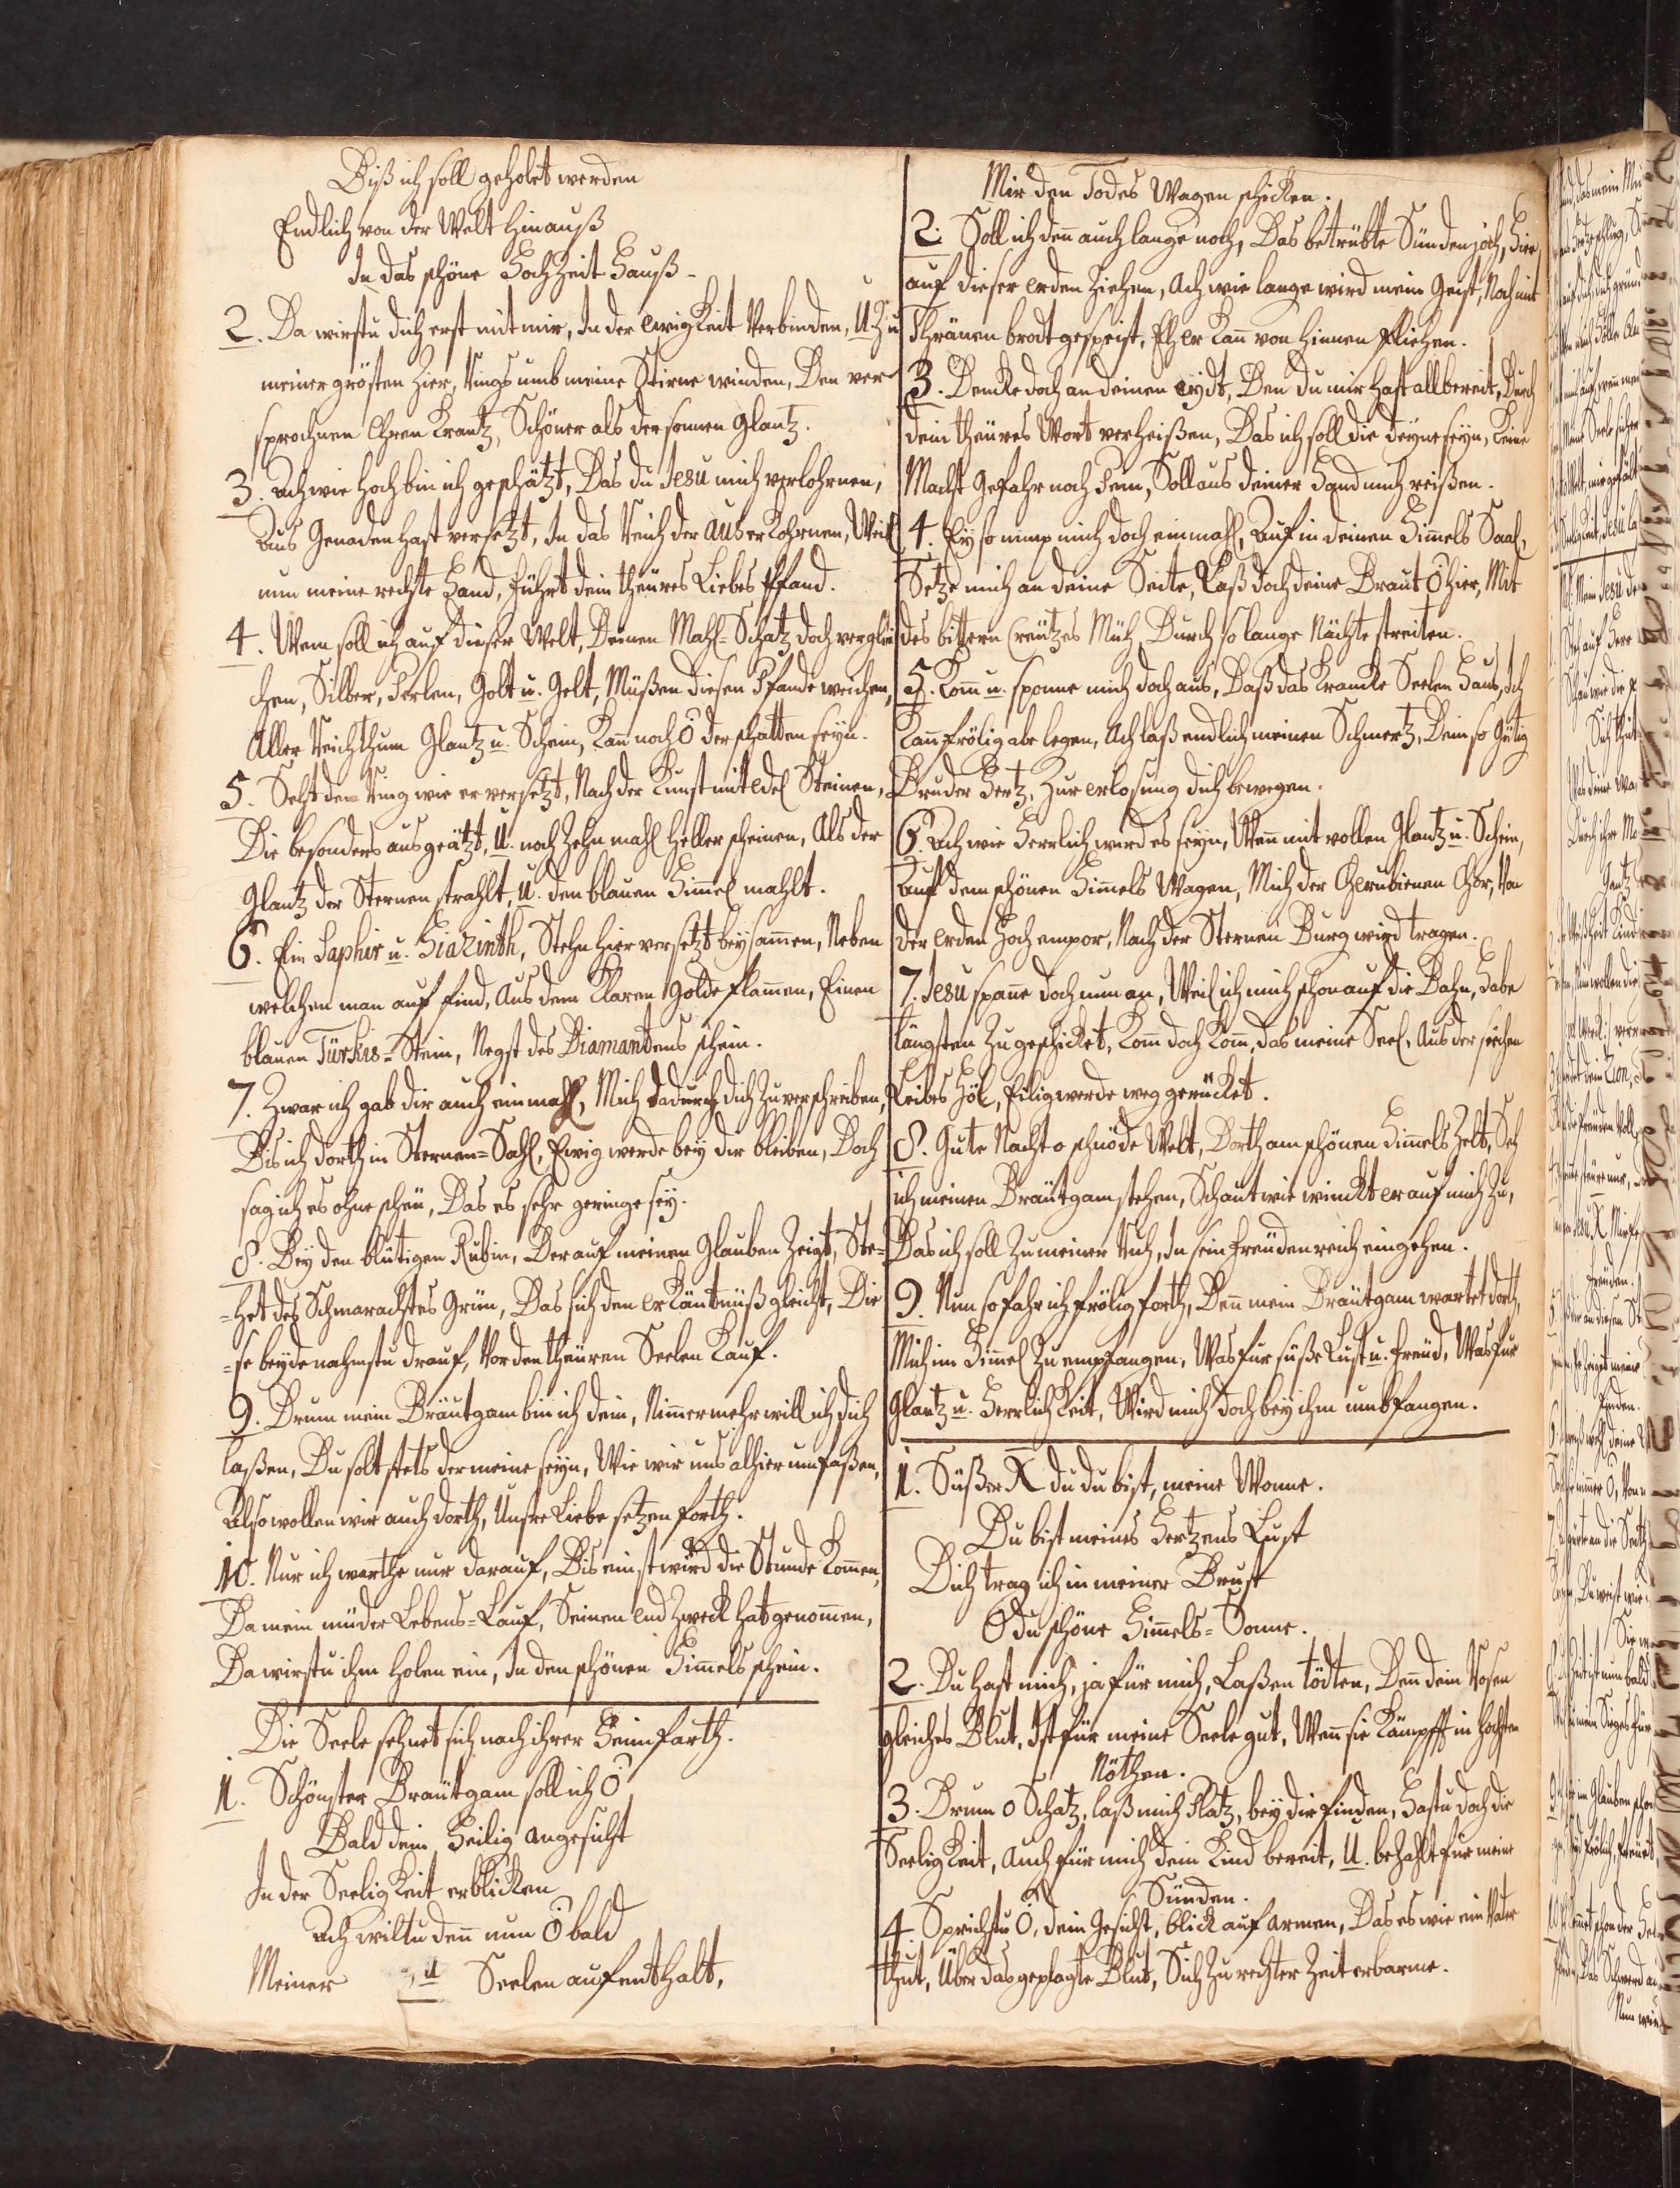 Biß ich soll geholet werden
Endlich von der Welt hinauß
In das schöne Hochzeit Hauß.
2. Da wirstu dich erst mit mir, In der ewigkeit verbinden, U. Zu
meiner grösten Zier, Rings umb meine Stirne winden, Den ver-
sprochnen Ehren Krantz, Schöner als der sonnen glantz.
3. Ach wie hoch bin ich geschätzt, Das du Jesu mich verlohrnen,
Aus Genaden hast versetzt, In das Reich der Außerkohrnen, Weil
nun meine rechte Hand, führt dein theures Liebes Pfand.
4. Wem soll ich auf dieser Welt, Deinen Mahl-Schatz doch verglei
chen, Silber, Perlen, Golt u. Gelt, Müßen diesen Pfande weichen,
Aller Reichthum Glantz u. Schein, Kan noch ö der schatten seyn.
5. Seht den Ring wie er versetzt, Nach der Kunst mit edel Steinen,
Die besonders ausgeätzt, U. noch Zehn mahl heller scheinen, Als der
Glantz der Sternen strahlt, U. den blauen Himel mahlt.
6. Ein Saphir u. Hiazinth, Stehn hier versetzt beysamen, Neben
welchen man auf find, Aus dem klaren golde flamen, Einen
blauen Türkis-Stein, Negst des Diamantens schein.
7. Zwar ich gab dir auch einmahl, Mich dadurch dich zuverschreiben,
Bis ich dorth in Sternen-Sahl, Ewig werde bey dir bleiben, Doch
sag ich es ohne scheu, Das es sehr geringe sey.
8. Bey den blutigen Rubin, Der auf meinen Glauben Zeigt, Ste-
-het des Schmaracktes Grün, Das sich den erkäntnüß gleicht, Die
-se beyde nahmstu drauf, Vor den theuren Seelen Kauf.
9. Drum mein Bräutgam bin ich dein, Nimermehr will ich dich
laßen, Du solt stets der meine seyn, Wie wir uns alhier umfaßen,
Also wollen wir auch dorth, Unsre Liebe setzen forth.
10. Nur ich warthe nur darauf, Bis einst wird die Stunde komen,
Da mein müder Lebens-Lauf, Seinen endzweck hat genomen,
Da wirstu ihm holen ein, In den schönen Himels schein.
Die Seele sehnet sich nach ihrer Heimfarth.
1. Schönster Bräutgam soll ich ö
Bald dein Heilig angesicht
In der Seeligkeit erblicken
Ach wiltu den nun ö bald
Meiner Seelen aufenthalt,
Mir den Todes Wagen schicken.
2. Soll ich den auch lange noch, Das betrübte Sünden joch, Hier
auf dieser erden Ziehen, Ach wie lange wird mein Geist, Noch mit
Thränen brodt gespeist, Eh er kan von hinnen fliehen.
3. Dencke doch an deinen eydt, Den du mir hast allbereit, Durch
dein theures Wort verheißen, Das ich soll die deyne seyn, Keine
Macht Gefahr noch Pein, Soll aus deiner Hand mich reißen.
4. Ey so nimm mich doch einmahl, Auf in deinen Himels Saal,
Setze mich an deine Seite, Laß doch deine Braut ö hier, Mit
des bittern Creutzes Müh, Durch so lange Nächte streiten.
5. Kom u. spanne mich doch aus, Daß das krancke Seelen Haus, Ich
kan frölig abe legen, Ach laß endlich meinen Schmertz, Dein so gütig
Bruder Hertz, Zur erlosung dich bewegen.
6. Ach wie Herrlich wird es seyn, Wan mit vollen Glantz u. Schein,
Auf dem schönen Himels Wagen, Mich der Cherubienen Chor, Von
der erden Hoch empor, Nach der Sternen Burg wird tragen.
7. Jesu spanne doch nun an, Weil ich mich schon auf die Bahn, Habe
längsten Zugeschicket, Kom doch kom, das meine Seel, Aus der siechen
Leibes Höl, Eilig werde weg gerücket.
8. Gute Nacht o schnöde Welt, Dorth am schönen Himels Zelt, Seh
ich meinen Bräutgam stehen, Schaut wie winckt er auf mich Zu,
Das ich soll Zu meiner Ruh, In sein Freudenreich eingehen.
9. Nun so fahr ich frölig forth, Den mein Bräutgam wartet dorth,
Mich im Himel Zuempfangen, Was fur süße Lust u. Freud, Was fur
Glantz u. Herrlichkeit, Wird mich doch bey ihm umbfangen.
1. Süßer X du du bist, meine Wonne.
Du bist meines Hertzens Lust
Dich trag ich in meiner Brust
O du schöne Himels-Sonne.
2. Du hast mich, ja für mich, Laßen tödten, Den dein Rosen
gleiches Blut, Ist für meine Seele gut, Wen sie kämpfft in höchsten
Nöthen.
3. Drum o Schatz, laß mich Platz, bey dir finden, Hastu doch die
Seeligkeit, Auch für mich dein Kind bereit, U. bezahlt fur meine
Sünden.
4. Sprichstu ö, dein Gesicht, blick auf armen, Das es wie ein Vater
thut, Über das geplagte Blut, Sich Zu rechter Zeit erbarme.